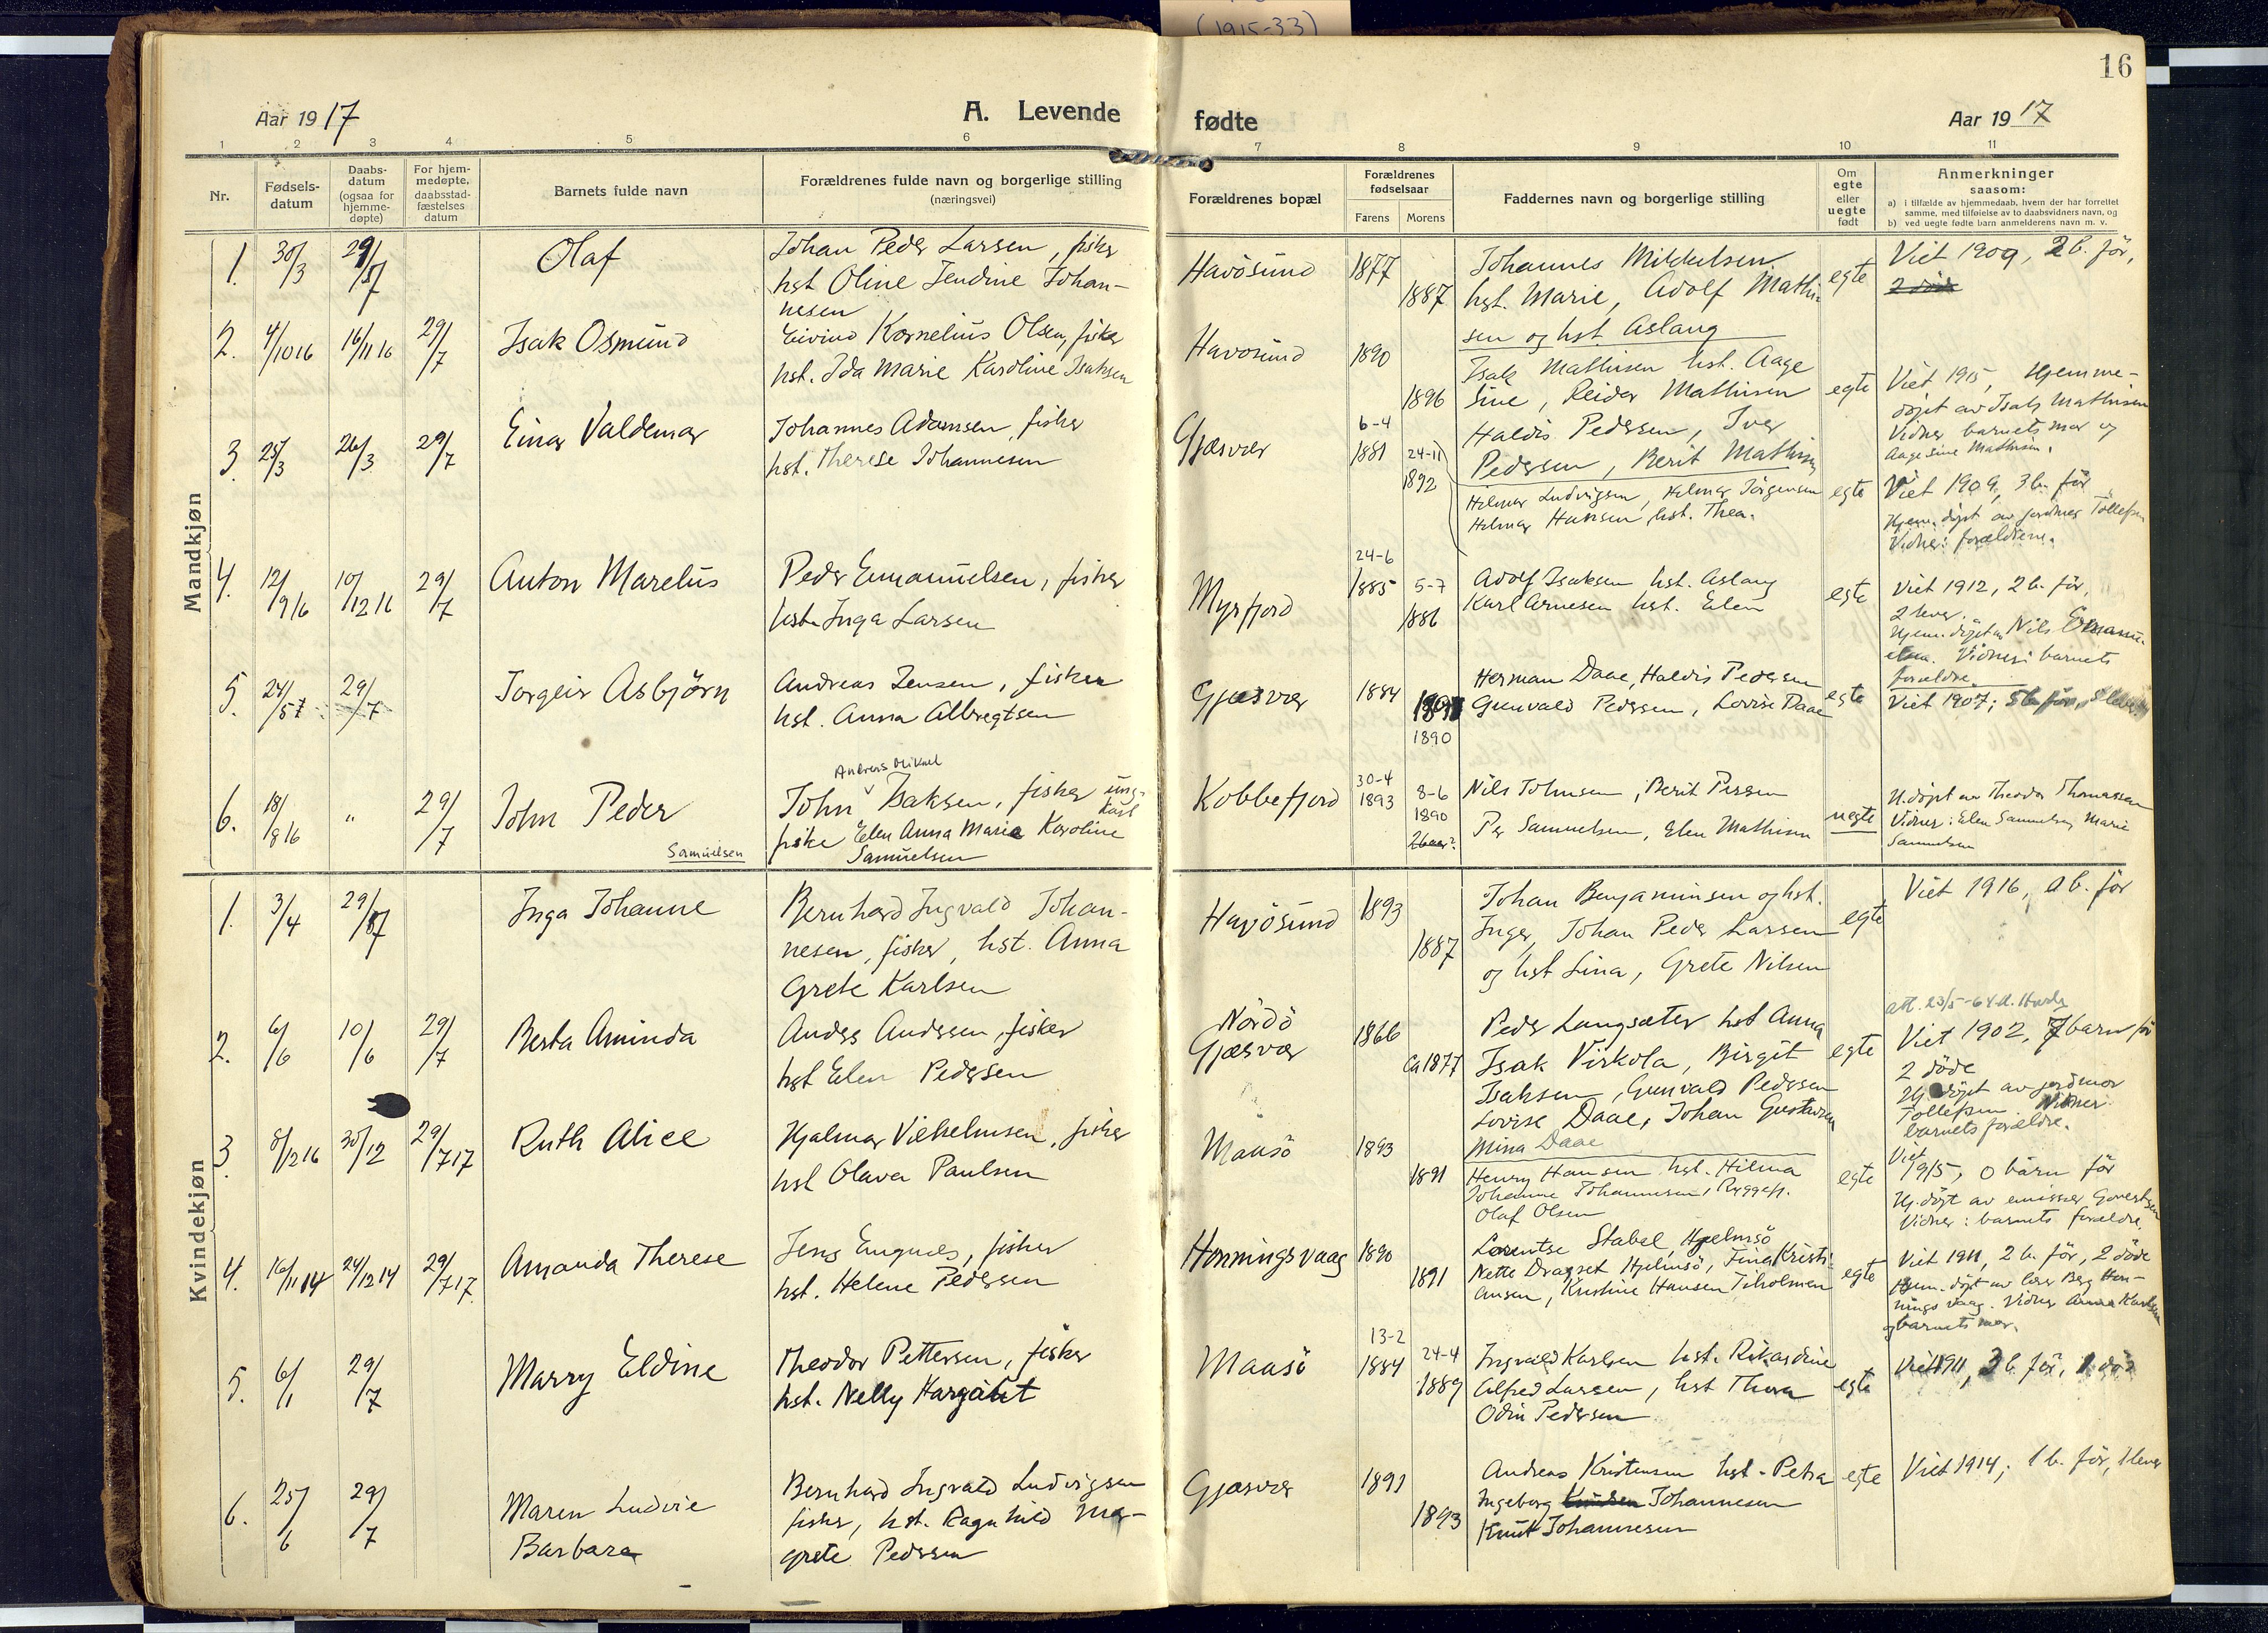 (1915-33)
16
Aar 1917
A. Levende
fødte
Aar 1917
1 2 3 4 5 6 7 8 9 10 11
Nr.
Fødsels-
datum
Daabs-
datum
(ogsaa for
hjemme-
døpte)
For hjem-
medøpte,
daabsstad-
fæstelses
datum
Barnets fulde navn
Forældrenes fulde navn og borgerlige stilling
(næringsvei)
Forældrenes bopæl
Forældrenes
fødselsaar
Farens Morens
Faddernes navn og borgerlige stilling
Om
egte
eller
uegte
født
Anmerkninger
saasom:
a) i tilfælde av hjemmedaab, hvem der har forrettet
samme, med tilføielse av to daabsvidners navn, og
b) ved uegte fødte barn anmelderens navn m. v.
Mandkjøn
1. 30/3 29/7 Olaf
Johan Peder Larsen, fisker
hst Oline Jendine Johan-
nesen
Havösund 1877 1887
Johannes Mikkelsen
hst. Marie, Adolf Mathi-
sen og hst. Aslaug
egte
Viet 1909, 2 b. før,
2. 4/10 16 16/11 16 29/7 Isak Osmund
Eivind Kornelius Olsen, fisker
hst. Ida Marie Karoline Isaksen
Havosund 1890 1896
Isak Mathisen hst. Aage
Sine, Reidar Mathisen
egte
Viet 1915, Hjemme-
døpt av Isak Mathisen
Vidner barnets mor og
Aagesine Mathisen.
3. 25/3 26/3 29/7 Einar Valdemar
Johannes Adamsen, fisker
hst. Therese Johannesen
Gjæsvær 6-4 1881 24-11 1892
Haldis Pedersen, Iver
Pedersen, Berit Mathisen
Hilmar Ludvigsen, Hilmar Jörgensen
Hilmar Hansen, hst. Thea.
egte
Viet 1909, 3 b. før
Hjem. døpt av jordmor Tollefsen
Vidner: forældrene.
4. 12/9 16 10/12 16 29/7 Anton Marelius
Peder Emanuelsen, fisker
hst. Inga Larsen
Myrfjord 24-6 1885 5-7 1886
Adolf Isaksen hst. Aslaug
Karl Arnesen hst. Elen
egte
Viet 1912, 2 b. før,
2 lever.
Hjem. døpt av Nils Emanu-
elsen. Vidner: barnets
forældre.
5. 24/5 17 29/7 Torgeir Asbjørn
Andreas Jensen, fisker
hst. Anna Albregtsen
Gjæsvær 1884 1890
Herman Daae, Haldis Pedersen
Gunvald Pedersen, Lovise Daae
egte
Viet 1907; 5 b. før,
6. 18/8 16 " 29/7 John Peder
Samuelsen
Andreas Mikael
John Isaksen, fisker ung-
karl
fiske Elen Anna Marie Karoline
Samuelsen
Kobbefjord 30-4 1893 8-6 1890
Nils Johnsen, Berit Persen
Per Samuelsen, Elen Mathisen
uegte
H. døpt av Theodor Thomassen
Vidner: Elen Samuelsen, Marie
Samuelsen
Kvindekjøn
1. 3/4 29/7 Inga Johanne
Bernhard Ingvald Johan-
nesen, fisker, hst. Anna
Grete Karlsen
Havösund 1893 1887
Johan Benjaminsen og hst.
Inger, Johan Peder Larsen
og hst Lina, Grete Nilsen
egte
Viet 1916, 0 b. før
2. 6/6 10/6 29/7 Berta Aminda
Anders Andersen, fisker
hst Elen Pedersen
Nordö
Gjæsvær 1866 ca 1877
Peder Langsæter hst Anna
Isak Virkola, Birgit
Isaksen, Gunvald Pedersen
Lovise Daae, Johan Gustavsen
Mina Daae
egte
Viet 1902, 7 barn før
2 døde
Hj. døpt av jordmor
Tollefsen. Vidner
barnets forældre.
3. 8/12 16 30/12 29/7 17 Ruth Alice
Hjalmar Vilhelmsen, fisker
hst Olava Paulsen
Maasö 1893 1891
Henry Hansen hst. Hilma
Johanne Johannesen, Ryggefj.
Olaf Olsen
egte
Viet
1915, 0 barn før
Hj. døpt av emissær Govertsen
Vidner: barnets forældre.
4. 16/11 14 24/12 14 29/7 17 Amanda Therese
Jens Engnæs, fisker
hst. Helene Pedersen
Honningsvaag 1890 1891
Lorentse Stabel, Hjelmsö
Nette Dragset Hjelmsö, Fina Kristi-
ansen, Kristine Hansen Tiholmen
egte
Viet 1911, 2 b. før, 2 døde
Hjem. døpt av lærer Berg Hon-
ningsvaag. Vidner Anna Karlsen
og barnets mor.
5. 6/1 29/7 Marry Eldine
Theodor Pettersen, fisker
hst. Nelly Hargaut
Maasö 13-2 1884 24-4 1889
Ingvald Karlsen hst. Rikardine
Alfred Larsen, hst Thora
Odin Pedersen
egte
Viet 1911, 3 b. før, 1 død
6. 25/6 29/7 Maren Ludvie
Barbara
Bernhard Ingvald Ludvigsen
fisker, hst. Ragnhild Mar-
grete Pedersen
Gjæsvær 1891 1893
Andreas Kristensen hst. Petra
Ingeborg Johannesen
Knut Johannesen
egte
Viet 1914; 1 b. før, 1 lever